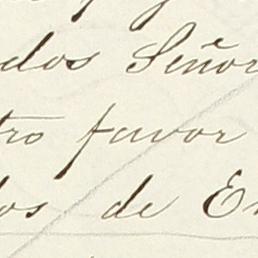 dos Señor
tro favor
los de En